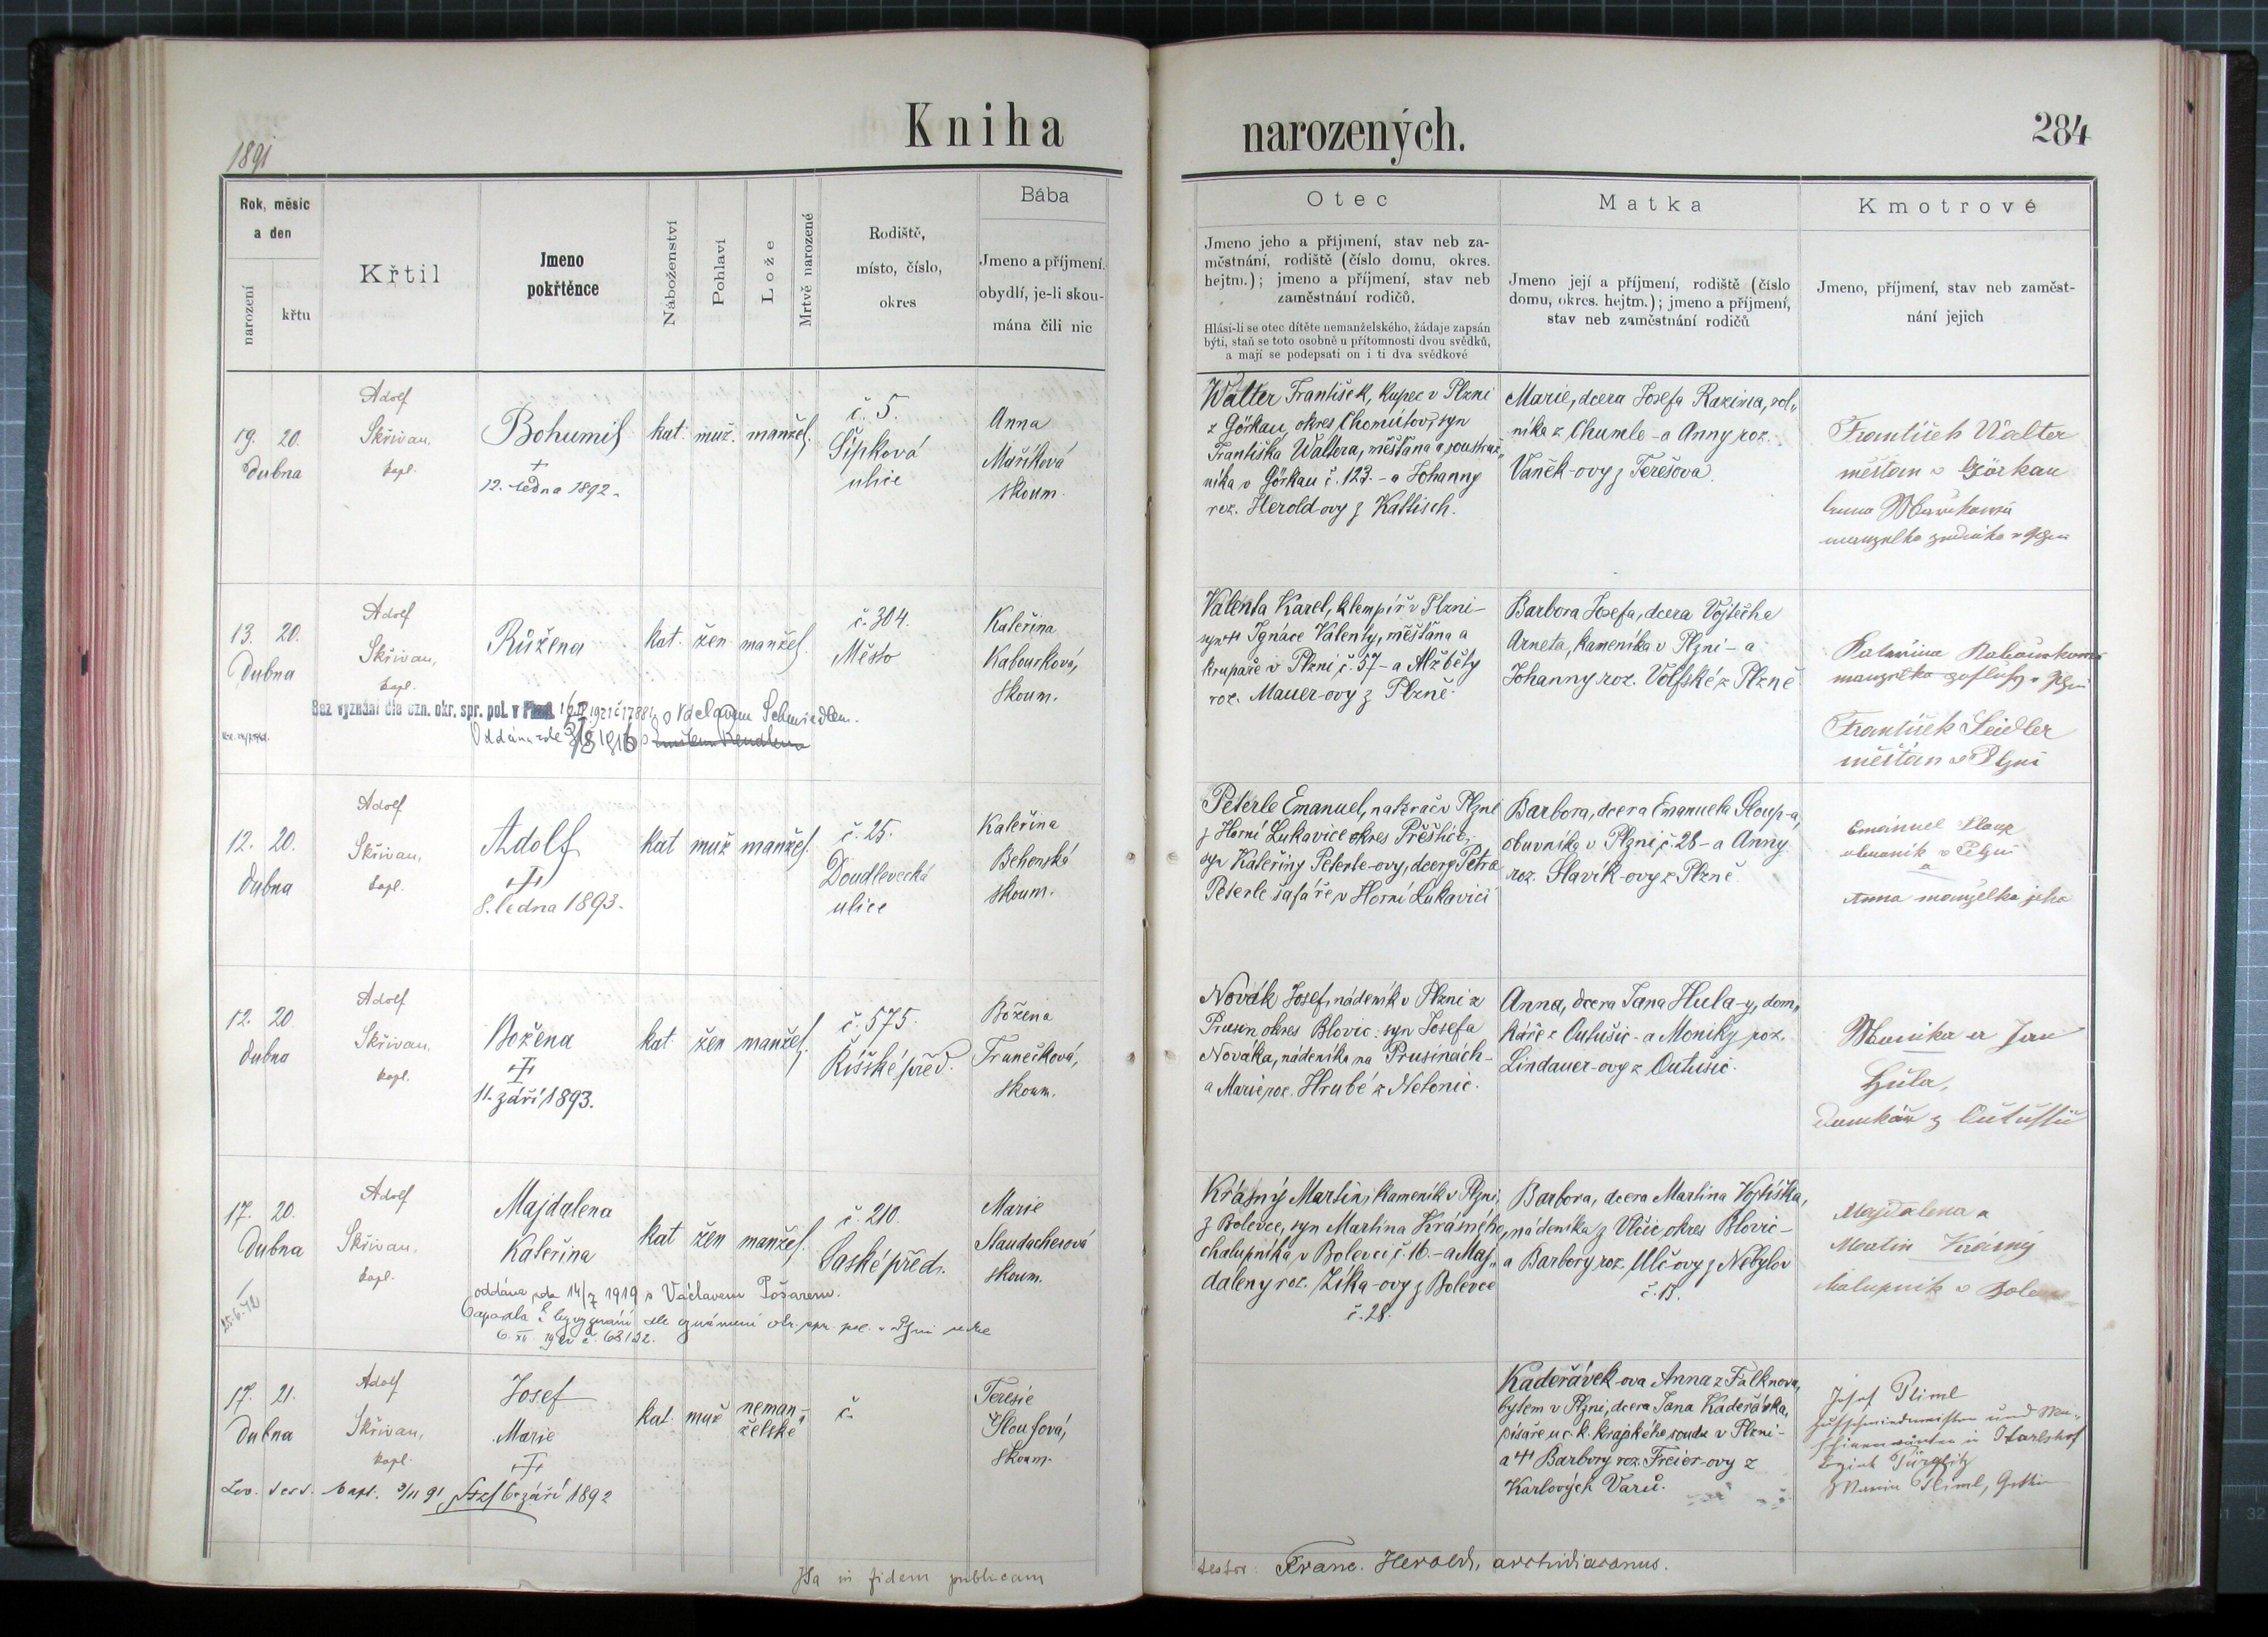 1891
Kniha
narozených.
284
Rok, měsíc
a den
narození
křtu
Křtil
Jmeno
pokřtěnce
Náboženství
Pohlaví
Lože
Mrtvě narozené
Rodiště,
místo, číslo,
okres
Bába
Jmeno a příjmení,
obydlí, je-li skou-
mána čili nic
Otec
Jmeno jeho a příjmení, stav neb za-
městnání, rodiště (číslo domu, okres.
hejtm.); jmeno a příjmení, stav neb
zaměstnání rodičů.
Hlásí-li se otec dítěte nemanželského, žádaje zapsán
býti, staň se toto osobně u přítomnosti dvou svědků,
a mají se podepsati on i ti dva svědkové
Matka
Jmeno její a příjmení, rodiště (číslo
domu, okres. hejtm.); jmeno a příjmení,
stav neb zaměstnání rodičů
Kmotrové
Jmeno, příjmení, stav neb zaměst-
nání jejich
19. 20.
Dubna
Adolf
Skřivan,
kapl.
Bohumil
12. ledna 1892.
kat. muž. manžel.
č. 5.
Šípková
ulice
Anna
Maříková
skoum.
Walter František, kupec v Plzni
z Görkau, okres Chomutov, syn
Františka Waltera, měšťana a soustruž„
níka v Görkau č. 127. - a Johanny
roz. Herold-ovy z
Marie, dcera Josefa Razima, rol„
níka z Chumle - a Anny roz.
Vaněk-ovy z Terešova.
František Walter
měštan v Görkau
13. 20.
Dubna
Adolf
Skřivan,
kapl.
Růžena
kat. žen manžel.
č. 304.
Město
Kateřina
Kabourková,
skoum.
Bez vyznání dle ozn. okr. spr. pol. v
s Václavem Schmiedlem.
Oddána zde
Valenta Karel, klempíř v Plzni -
syn Ignáce Valenty, měšťana a
krupaře v Plzni č. 57 - a Alžběty
roz. Mauer-ovy z Plzně.
Barbora Josefa, dcera Vojtěcha
Arneta, kameníka v Plzni - a
Johanny roz. Volfské z Plzně.
František Seidler
měštan v Plzni
12. 20.
Dubna
Adolf
Skřivan,
kapl.
Adolf
8. ledna 1893.
kat muž manžel.
č. 25.
Doudlevecká
ulice
Kateřina
Behenská
skoum.
Peterle Emanuel, natěrač v Plzni
z Horní Lukavice okres Přeštic,
syn Kateřiny Peterle-ovy, dcery Petra
Peterle šafáře v Horní Lukavici
Barbora, dcera Emanuela Sloup-a,
obuvníka v Plzni, č. 28 - a Anny
roz. Slavík-ovy z Plzně.
Emanuel Sloup
obuvník v Plzni
a
Anna manželka jeho
12. 20.
Dubna
Adolf
Skřivan,
kapl.
Božena
11. září 1893.
kat. žen manžel.
č. 575.
Říšské před.
Božena
Franečková,
skoum.
Novák Josef, nádeník v Plzni z
Prusin okres Blovic: syn Josefa
Nováka, nádeníka na Prusinách -
a Marie roz. Hrubé z Netonic.
Anna, dcera Jana Hula-y, dom„
káře z Outušic - a Moniky roz.
Lindauer-ovy z Outušic.
Monika a Jan
Hula,
17. 20.
Dubna
Adolf
Skřivan,
kapl.
Majdalena
Kateřina
kat žen manžel.
č. 210.
Saské před.
Marie
Staudacherová
skoum.
oddána zde 14/7 1919 s Václavem Pošarem.
Krásný Martin, kameník v Plzni,
z Bolevce, syn Martina Krásného,
chalupníka v Bolevci č. 16. - a Maj„
daleny roz. Zíka-ovy z Bolevce
č. 28.
Barbora, dcera Martina Vojtíška,
nádeníka z Vlčic, okres Blovic -
a Barbory roz. Ulč-ovy z Nebylov
č. 15.
Majdalena a
Martin Krásný
17. 21.
Dubna
Adolf
Skřivan,
kapl.
Josef
Marie
kat. muž neman-
želské
č.
Teresie
skoum.
6. září 1892
Kadeřávek-ova Anna z Falknova,
bytem v Plzni, dcera Jana Kadeřávka,
písaře u c. k. krajského soudu v Plzni -
a Barbory roz. Freier-ovy z
Karlových Varů.
Josef Pliml
Ita in fidem publicam
testor: Franc. Herold, archidiaconus.